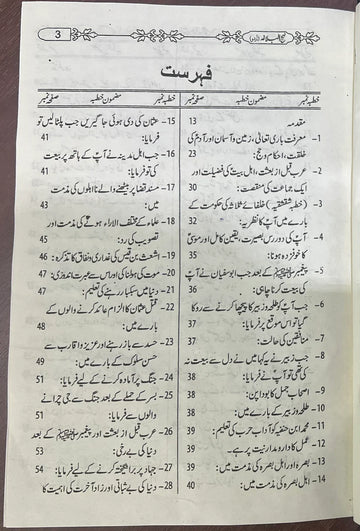 3
نہج البلاغہ (اردو)
فہرست
خطبہ نمبر مضمون خطبہ صفحہ نمبر
مقدمہ 13
1- معرفت باری تعالیٰ، زمین و آسمان اور آدم کی
خلقت، احکام و حج: 23
2- عرب قبل از بعثت، اہل بیت کی فضیلت اور
ایک جماعت کی منقصت: 30
3- (خطبہ شقشقیہ) خلفائے ثلاثہ کی حکومت کے
بارے میں آپ کا نظریہ: 32
4- آپ کی دوررس بصیرت، یقین کامل اور موسیٰ
کا خوفزدہ ہونا: 35
5- پیغمبر صلی اللہ علیہ وسلم کے بعد جب ابوسفیان نے آپ
کی بیعت کرنا چاہی: 36
6- جب آپ کو طلحہ و زبیر کا پیچھا کرنے سے روکا
گیا تو اس موقع پر فرمایا: 37
7- منافقین کی حالت: 37
8- جب زبیر نے یہ کہا میں نے دل سے بیعت نہ
کی تھی تو آپ نے فرمایا: 38
9- اصحاب جمل کا بودا پن: 38
10- طلحہ و زبیر کے بارے میں: 38
11- محمد ابن حنفیہ کو آداب حرب کی تعلیم: 39
12- عمل کا دارومدار نیت پر ہے۔ 39
13- بصرہ اور اہل بصرہ کی مذمت میں: 39
14- اہل بصرہ کی مذمت میں: 40
خطبہ نمبر مضمون خطبہ صفحہ نمبر
15- عثمان کی دی ہوئی جاگیریں جب پلٹا لیں تو
فرمایا: 41
16- جب اہل مدینہ نے آپ کے ہاتھ پر بیعت
کی تو فرمایا: 41
17- مسند قضا پر بیٹھنے والے نااہلوں کی مذمت
میں: 43
18- علماء کے مختلف الآراء ہونے کی مذمت اور
تصویب کی رد: 45
19- اشعث بن قیس کی غداری و نفاق کا تذکرہ: 46
20- موت کی ہولناکی اور اس سے عبرت اندوزی: 47
21- دنیا میں سبکبار رہنے کی تعلیم: 47
22- قتل عثمان کا الزام عائد کرنے والوں کے
بارے میں: 48
23- حسد سے باز رہنے اور عزیز و اقارب سے
حسن سلوک کے بارے میں: 49
24- جنگ پر آمادہ کرنے کے لیے فرمایا: 51
25- بسر کے حملے کے بعد جنگ سے جی چرانے
والوں سے فرمایا: 51
26- عرب قبل از بعثت اور پیغمبر صلی اللہ علیہ وسلم کے بعد
دنیا کی بے رخی: 53
27- جہاد پر برانگیختہ کرنے کے لیے فرمایا: 54
28- دنیا کی بے ثباتی اور زاد آخرت کی اہمیت کا